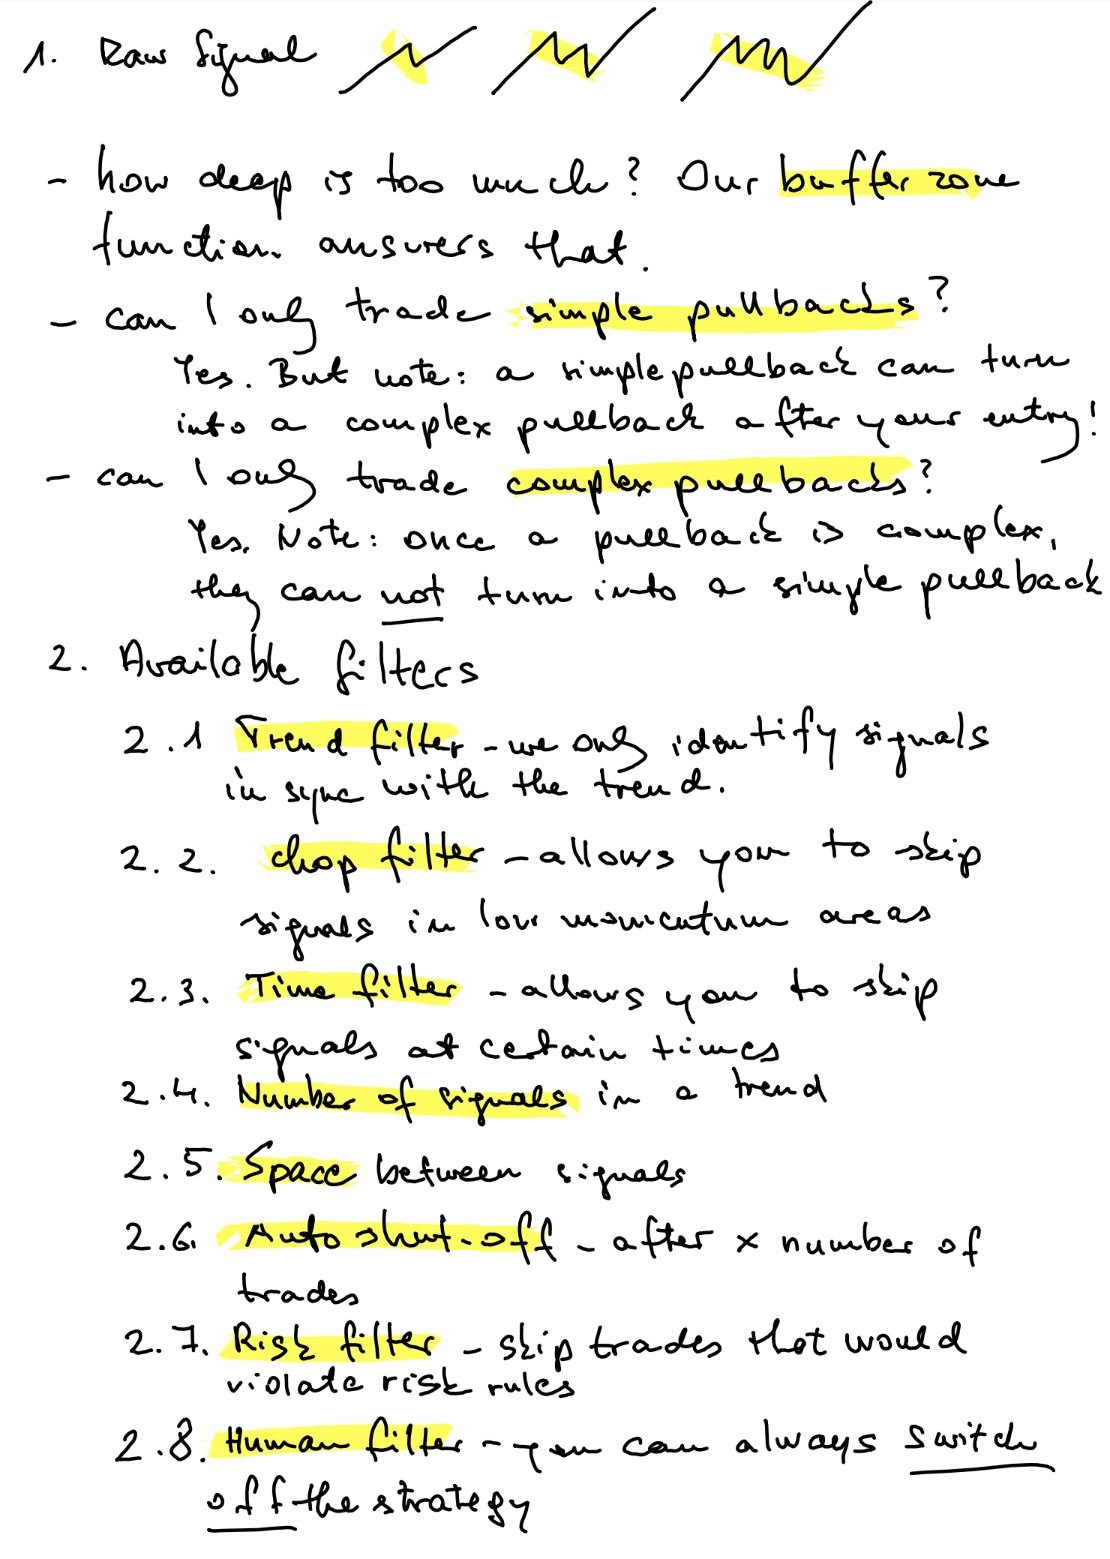 1. Raw Signal
- how deep is too much? Our buffer zone
function answers that.
- can I only trade simple pullbacks?
Yes. But note: a simple pullback can turn
into a complex pullback after your entry!
- can I only trade complex pullbacks?
Yes. Note: once a pullback is complex,
they can not turn into a simple pullback
2. Available filters
2.1 Trend filter - we only identify signals
in sync with the trend.
2.2. Chop filter - allows you to skip
signals in low momentum areas
2.3. Time filter - allows you to skip
signals at certain times
2.4. Number of signals in a trend
2.5. Space between signals
2.6. Auto shut-off - after x number of
trades
2.7. Risk filter - skip trades that would
violate risk rules
2.8. Human filter - you can always switch
off the strategy